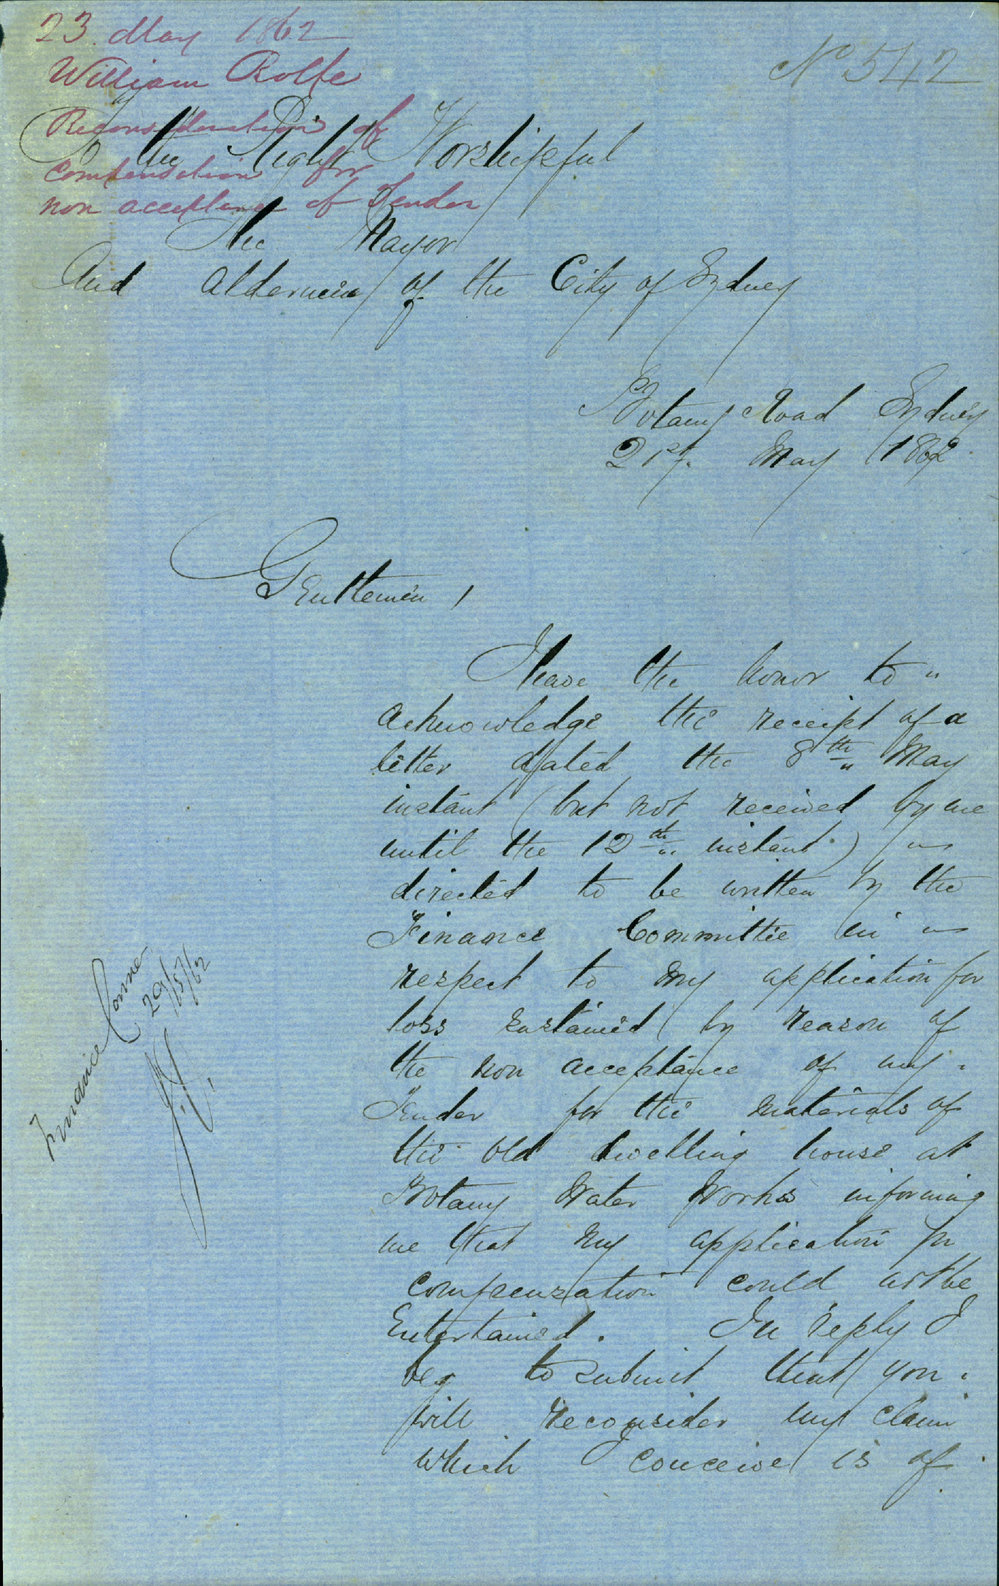 23 May 1862
William Rolfe
Reconsideration of
Compensation for
non acceptance of Tender
No 542
To the Right Worshipful
The Mayor
And Aldermen of the City of Sydney
Botany Road Sydney
21st May 1862
Gentlemen,
I have the honor to "
acknowledge the receipt of a
letter dated the 8th May
instant (but not received by me
until the 12th instant)
directed to be written by the
Finance Committee in
respect to my application for
loss sustained by reason of
the non acceptance of my
Tender for the materials of
the old dwelling house at
Botany Water Works informing
me that my application for
compensation could not be
Entertained. In reply I
beg to submit that you
will reconsider my claim
which I conceive is of
Finance Comme
20/5/62